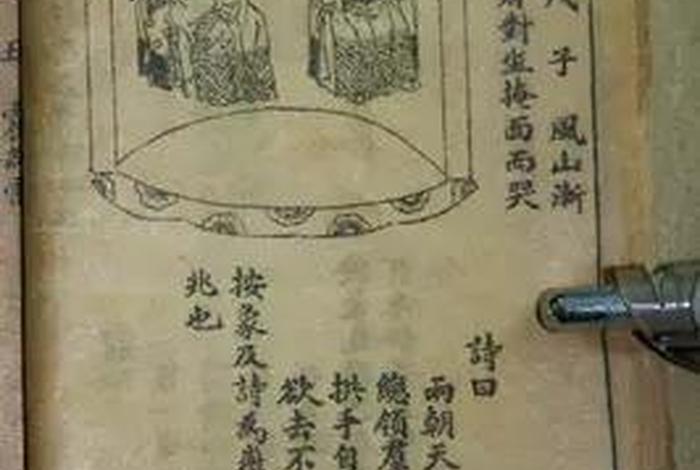 子 風山漸
對坐掩面而哭
詩曰
兩朝天
總領羣
拱手自
欲去不
按象及詩為
兆也